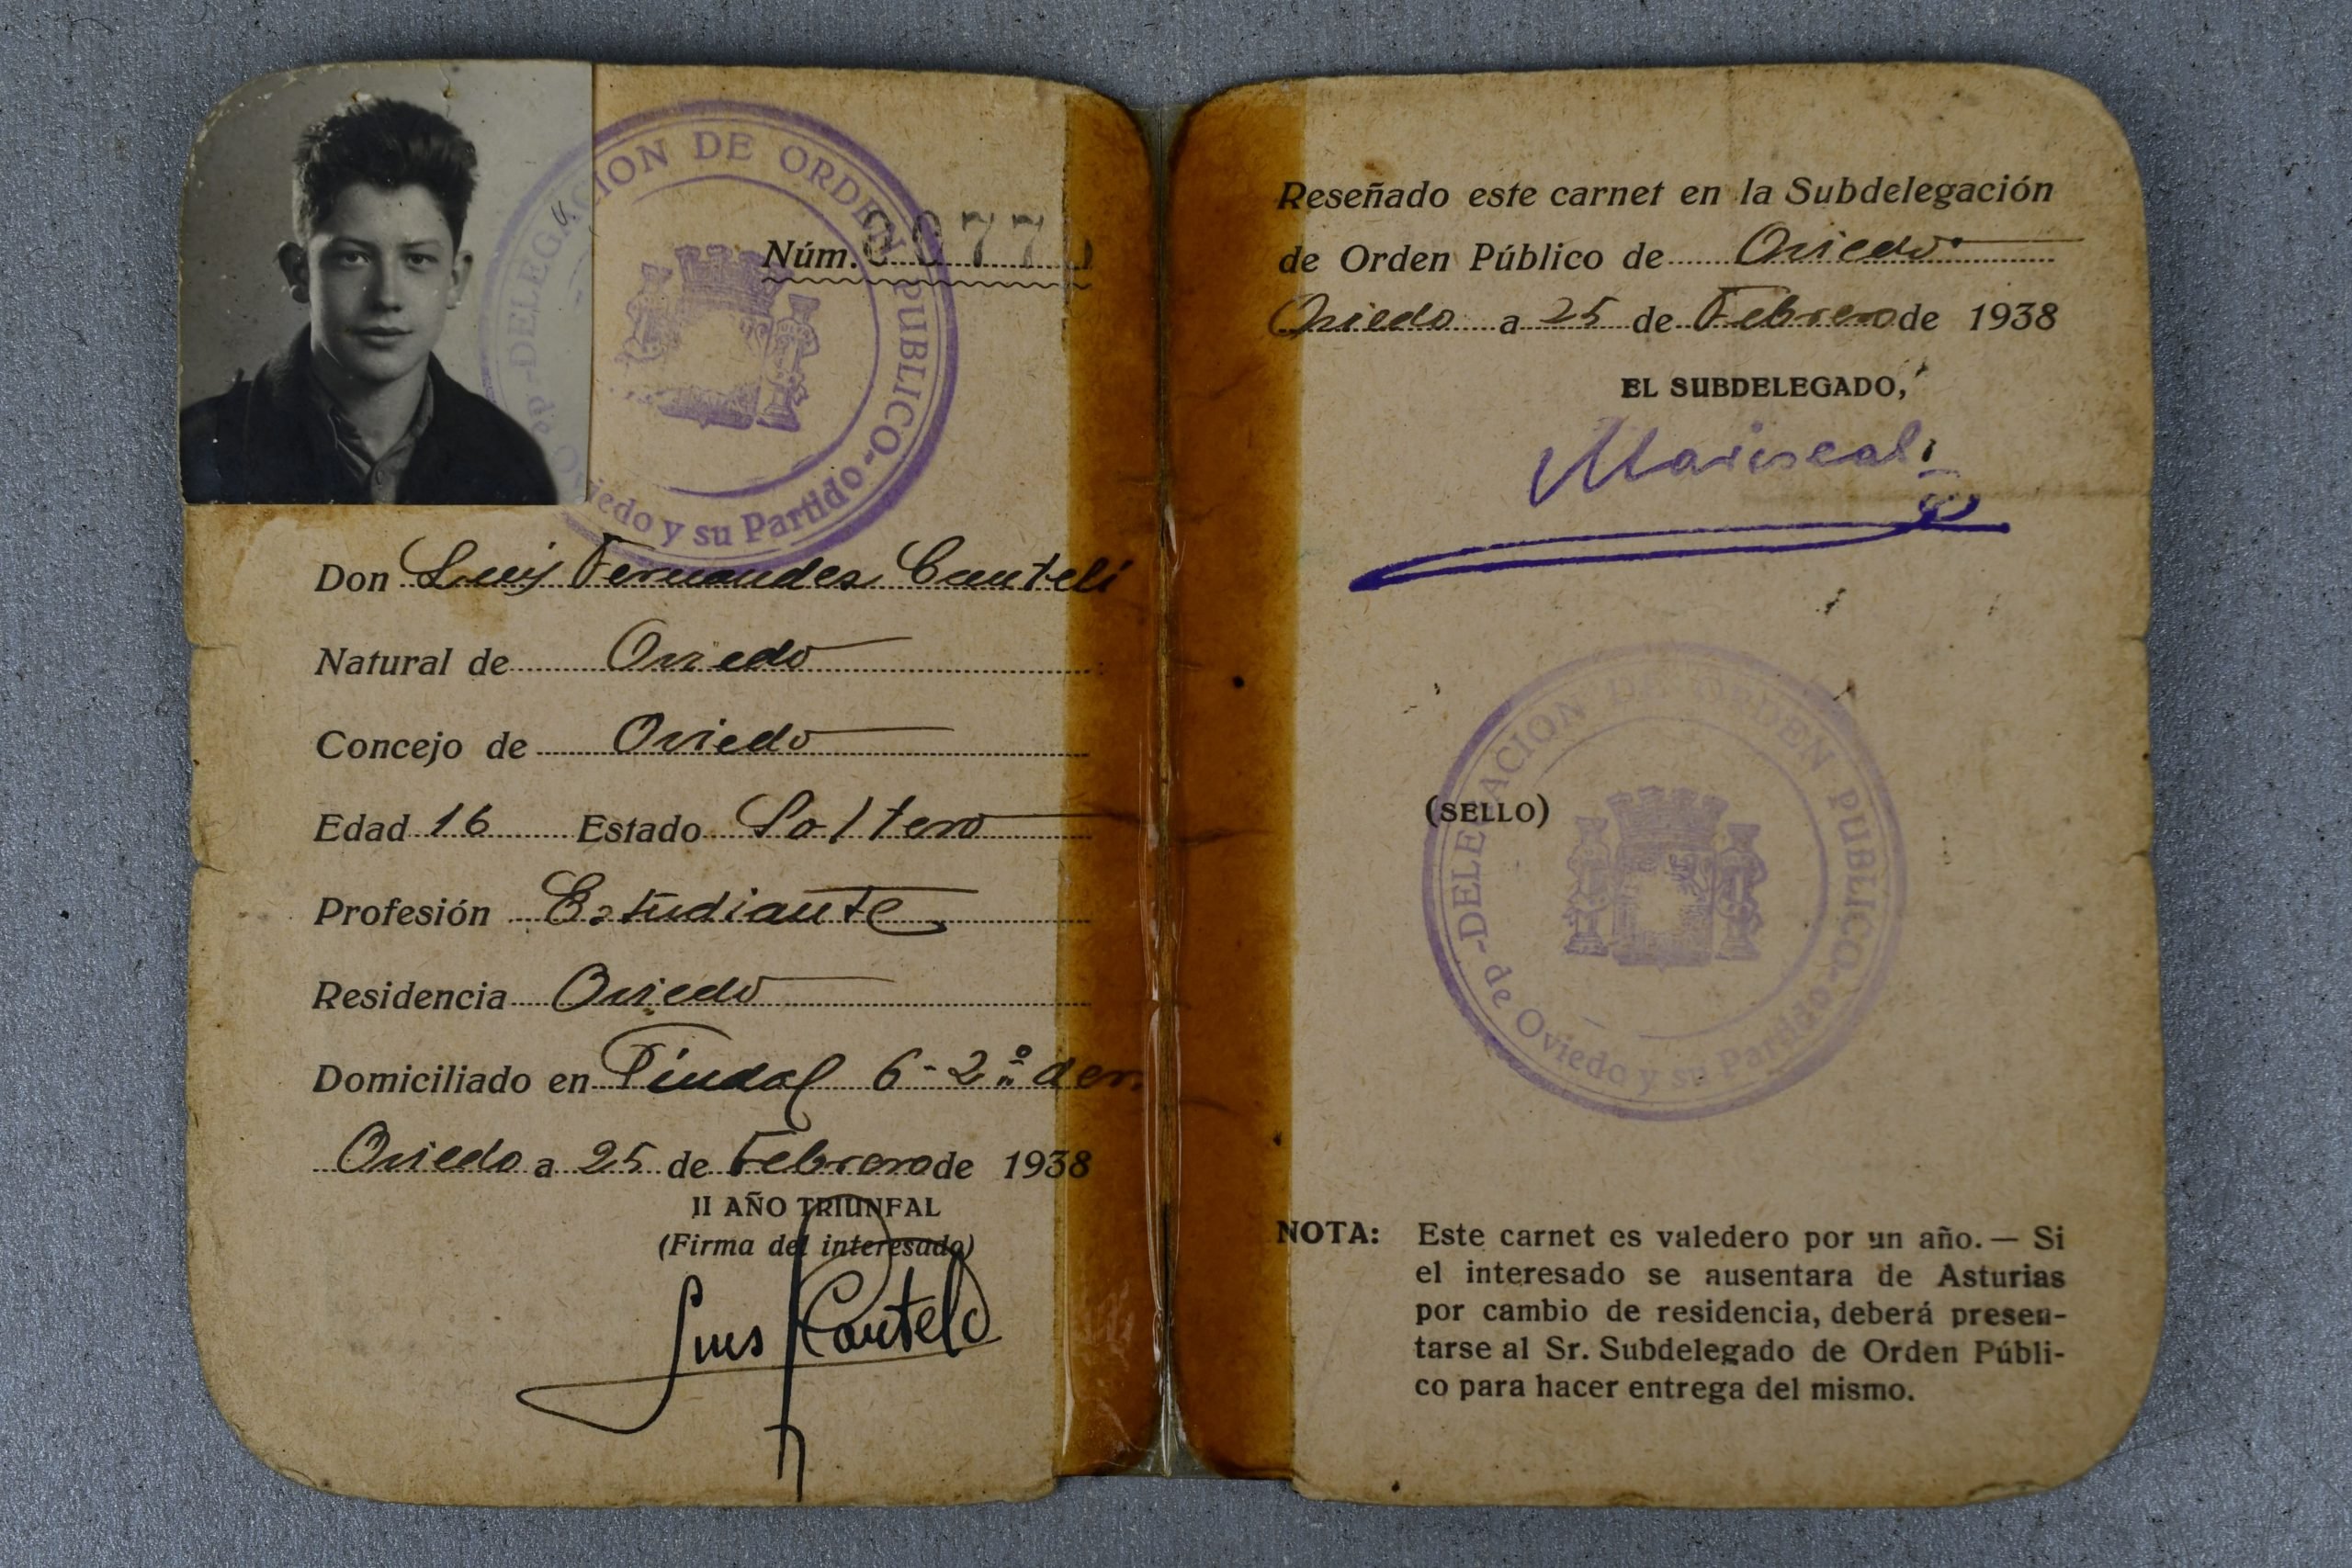 DELEGACION DE ORDEN PUBLICO
de Oviedo y su Partido
Núm.
Don Luis Fernandes Canteli
Natural de Oviedo
Concejo de Oviedo
Edad 16 Estado Soltero
Profesión Estudiante
Residencia Oviedo
Domiciliado en Pidal 6-2º der.
Oviedo a 25 de Febrero de 1938
II AÑO TRIUNFAL
(Firma del interesado)
Luis Canteli
Reseñado este carnet en la Subdelegación
de Orden Público de Oviedo
Oviedo a 25 de Febrero de 1938
EL SUBDELEGADO,
Mariscal
(SELLO)
DELEGACION DE ORDEN PUBLICO
de Oviedo y su Partido
NOTA: Este carnet es valedero por un año. — Si
el interesado se ausentara de Asturias
por cambio de residencia, deberá presen-
tarse al Sr. Subdelegado de Orden Públi-
co para hacer entrega del mismo.